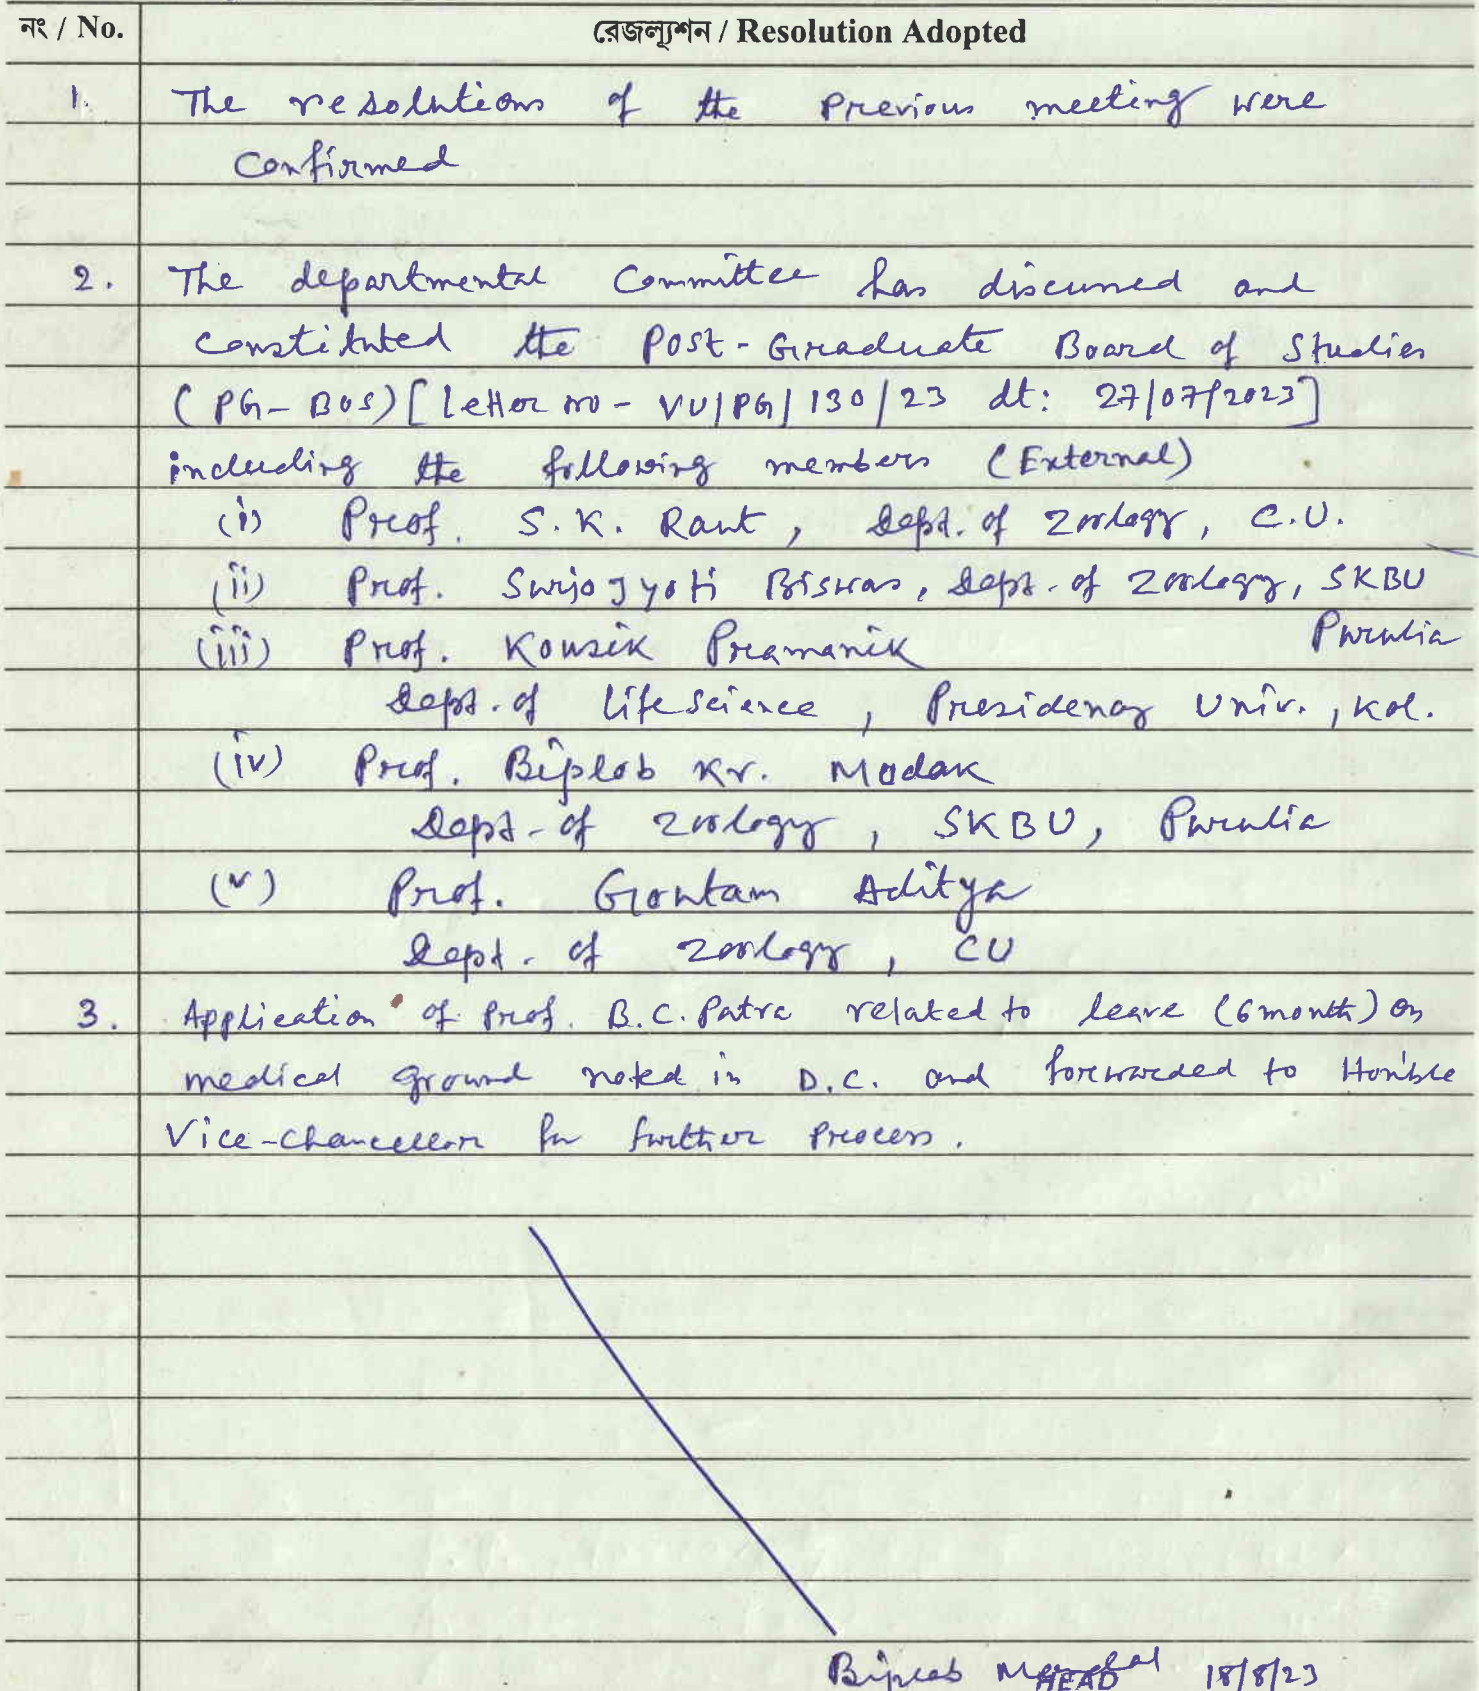 নং / No.
রেজল্যুশন / Resolution Adopted
1. The resolutions of the Previous meeting were
Confirmed
2. The departmental Committee has discussed and
constituted the Post-Graduate Board of Studies
(PG-BOS) [Letter no - VU/PG/130/23 dt: 27/07/2023]
including the following members (External)
(i) Prof. S.K. Raut, Dept. of Zoology, C.U.
(ii) Prof. Surjo Jyoti Biswas, Dept. of Zoology, SKBU
Purulia
(iii) Prof. Kousik Pramanik
Dept. of Life Science, Presidency Univ., Kol.
(iv) Prof. Biplob Kr. Modak
Dept - of Zoology, SKBU, Purulia
(v) Prof. Goutam Aditya
Dept. of Zoology, CU
3. Application of Prof. B.C. Patra related to leave (6 month) on
medical ground noted in D.C. and forwarded to Hon'ble
Vice-Chancellor for further Process.
Biplab Mandal 18/8/23
HEAD